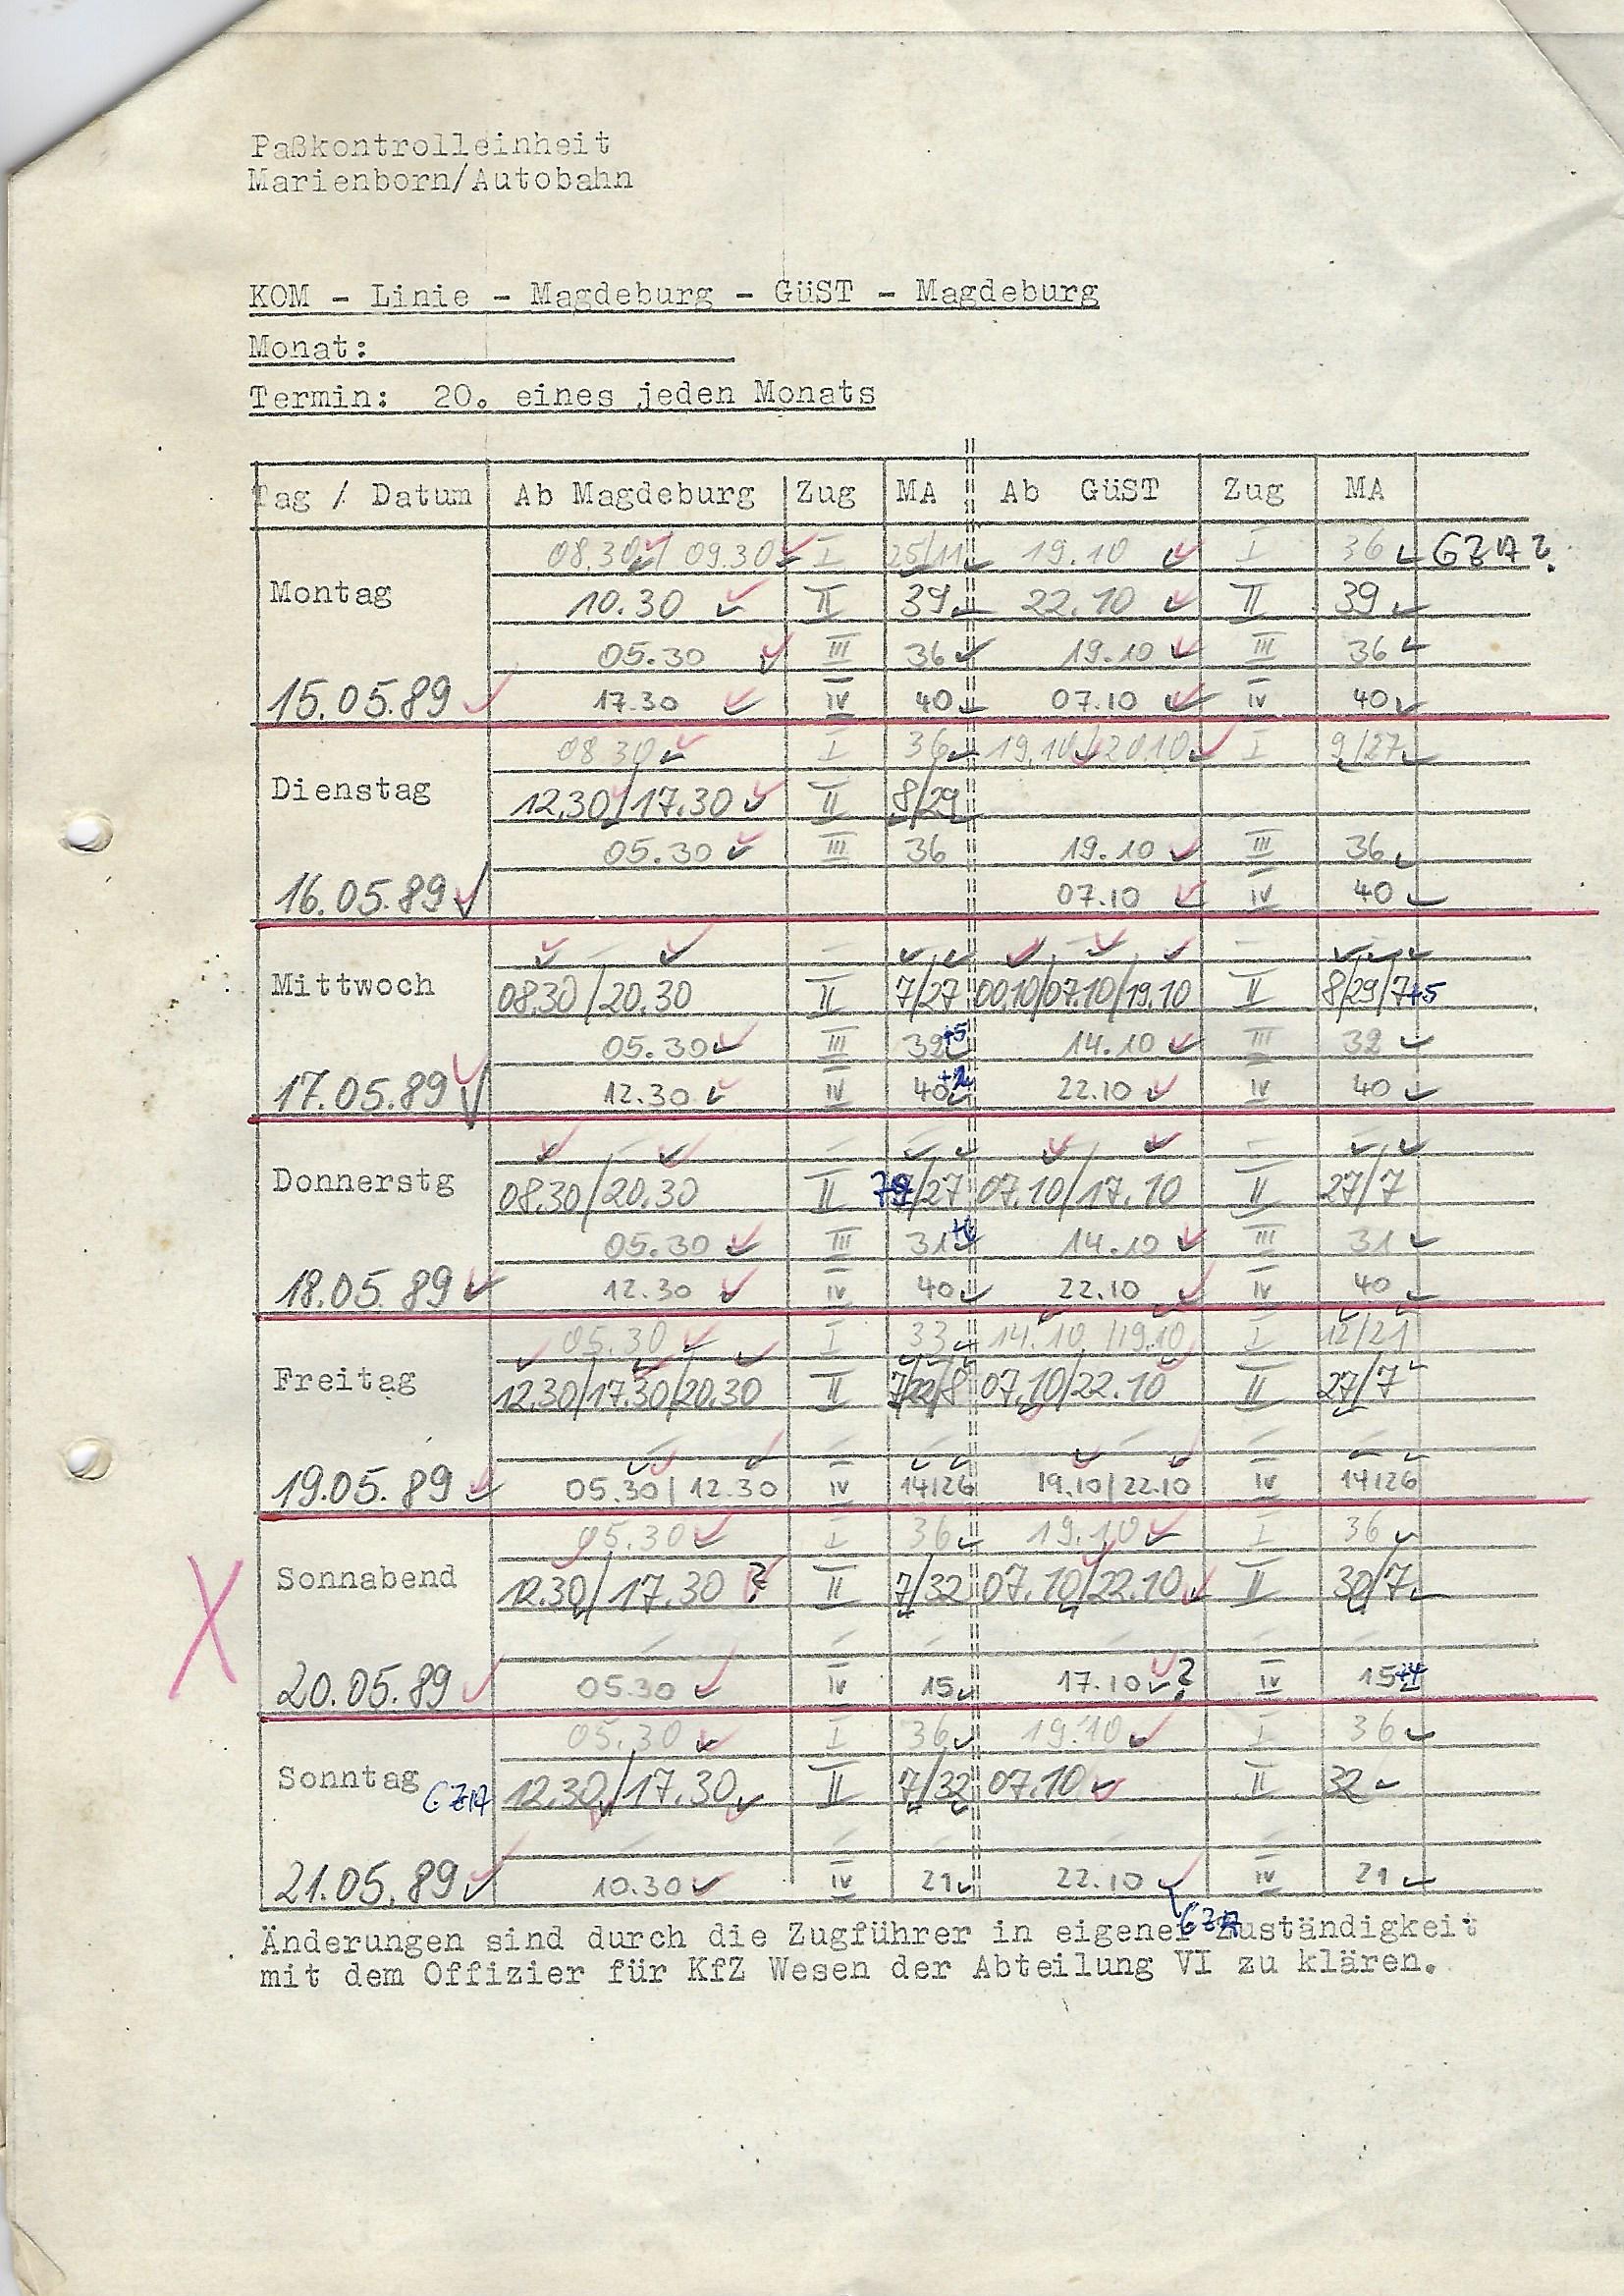 Paßkontrolleinheit
Marienborn/Autobahn
KOM - Linie - Magdeburg - GüST - Magdeburg
Monat:
Termin: 20. eines jeden Monats
Tag / Datum Ab Magdeburg Zug MA Ab GüST Zug MA
08.30 / 09.30 I 25/11 19.10 I 36 GZA?
Montag 10.30 II 39 22.10 II 39
05.30 III 36 19.10 III 36
15.05.89 17.30 IV 40 07.10 IV 40
08.30 I 36 19.10/20.10 I 9/27
Dienstag 12.30/17.30 II 8/29
05.30 III 36 19.10 III 36
16.05.89 07.10 IV 40
Mittwoch 08.30/20.30 II 7/27 00.10/07.10/19.10 II 8/29/7+5
05.30 III 32+5 14.10 III 32
17.05.89 12.30 IV 40 22.10 IV 40
Donnerstg 08.30/20.30 II /27 07.10/17.10 II 27/7
05.30 III 31 14.10 III 31
18.05.89 12.30 IV 40 22.10 IV 40
05.30 I 33 14.10/19.10 I 12/21
Freitag 12.30/17.30/20.30 II 7/22/8 07.10/22.10 II 27/7
19.05.89 05.30/12.30 IV 14/26 19.10/22.10 IV 14/26
05.30 I 36 19.10 I 36
Sonnabend 12.30/17.30 ? II 7/32 07.10/22.10 II 30/7
20.05.89 05.30 IV 15 17.10 ? IV 15+4
05.30 I 36 19.10 I 36
Sonntag GZA 12.30/17.30 II 7/32 07.10 II 32
21.05.89 10.30 IV 21 22.10 IV 21
GZA
Änderungen sind durch die Zugführer in eigener Zuständigkeit
mit dem Offizier für KfZ Wesen der Abteilung VI zu klären.